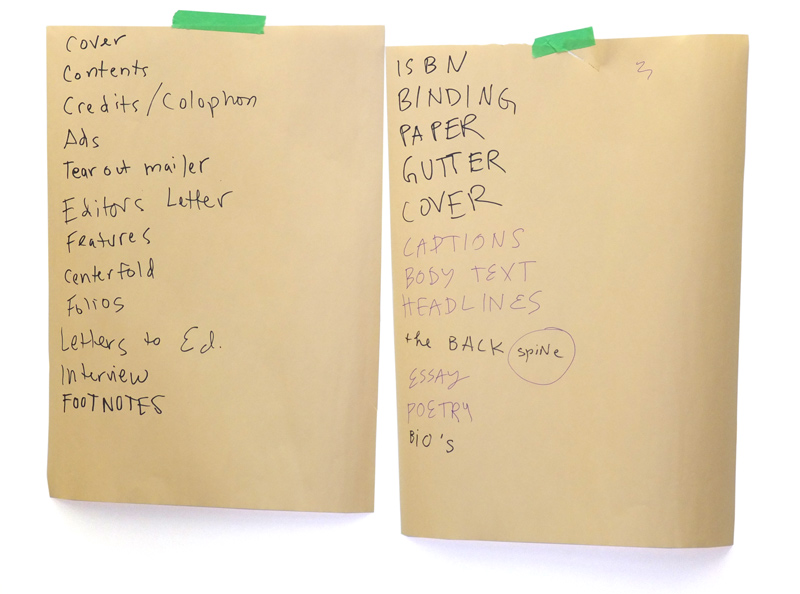 Cover
Contents
Credits/Colophon
Ads
Tear out mailer
Editors Letter
Features
Centerfold
Folios
Letters to Ed.
Interview
FOOTNOTES
ISBN
BINDING
PAPER
GUTTER
COVER
CAPTIONS
BODY TEXT
HEADLINES
the BACK spine
ESSAY
POETRY
BIO's